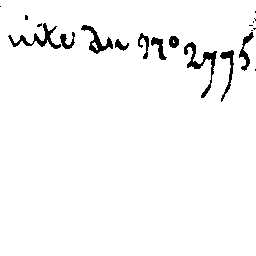 uite du N° 2775